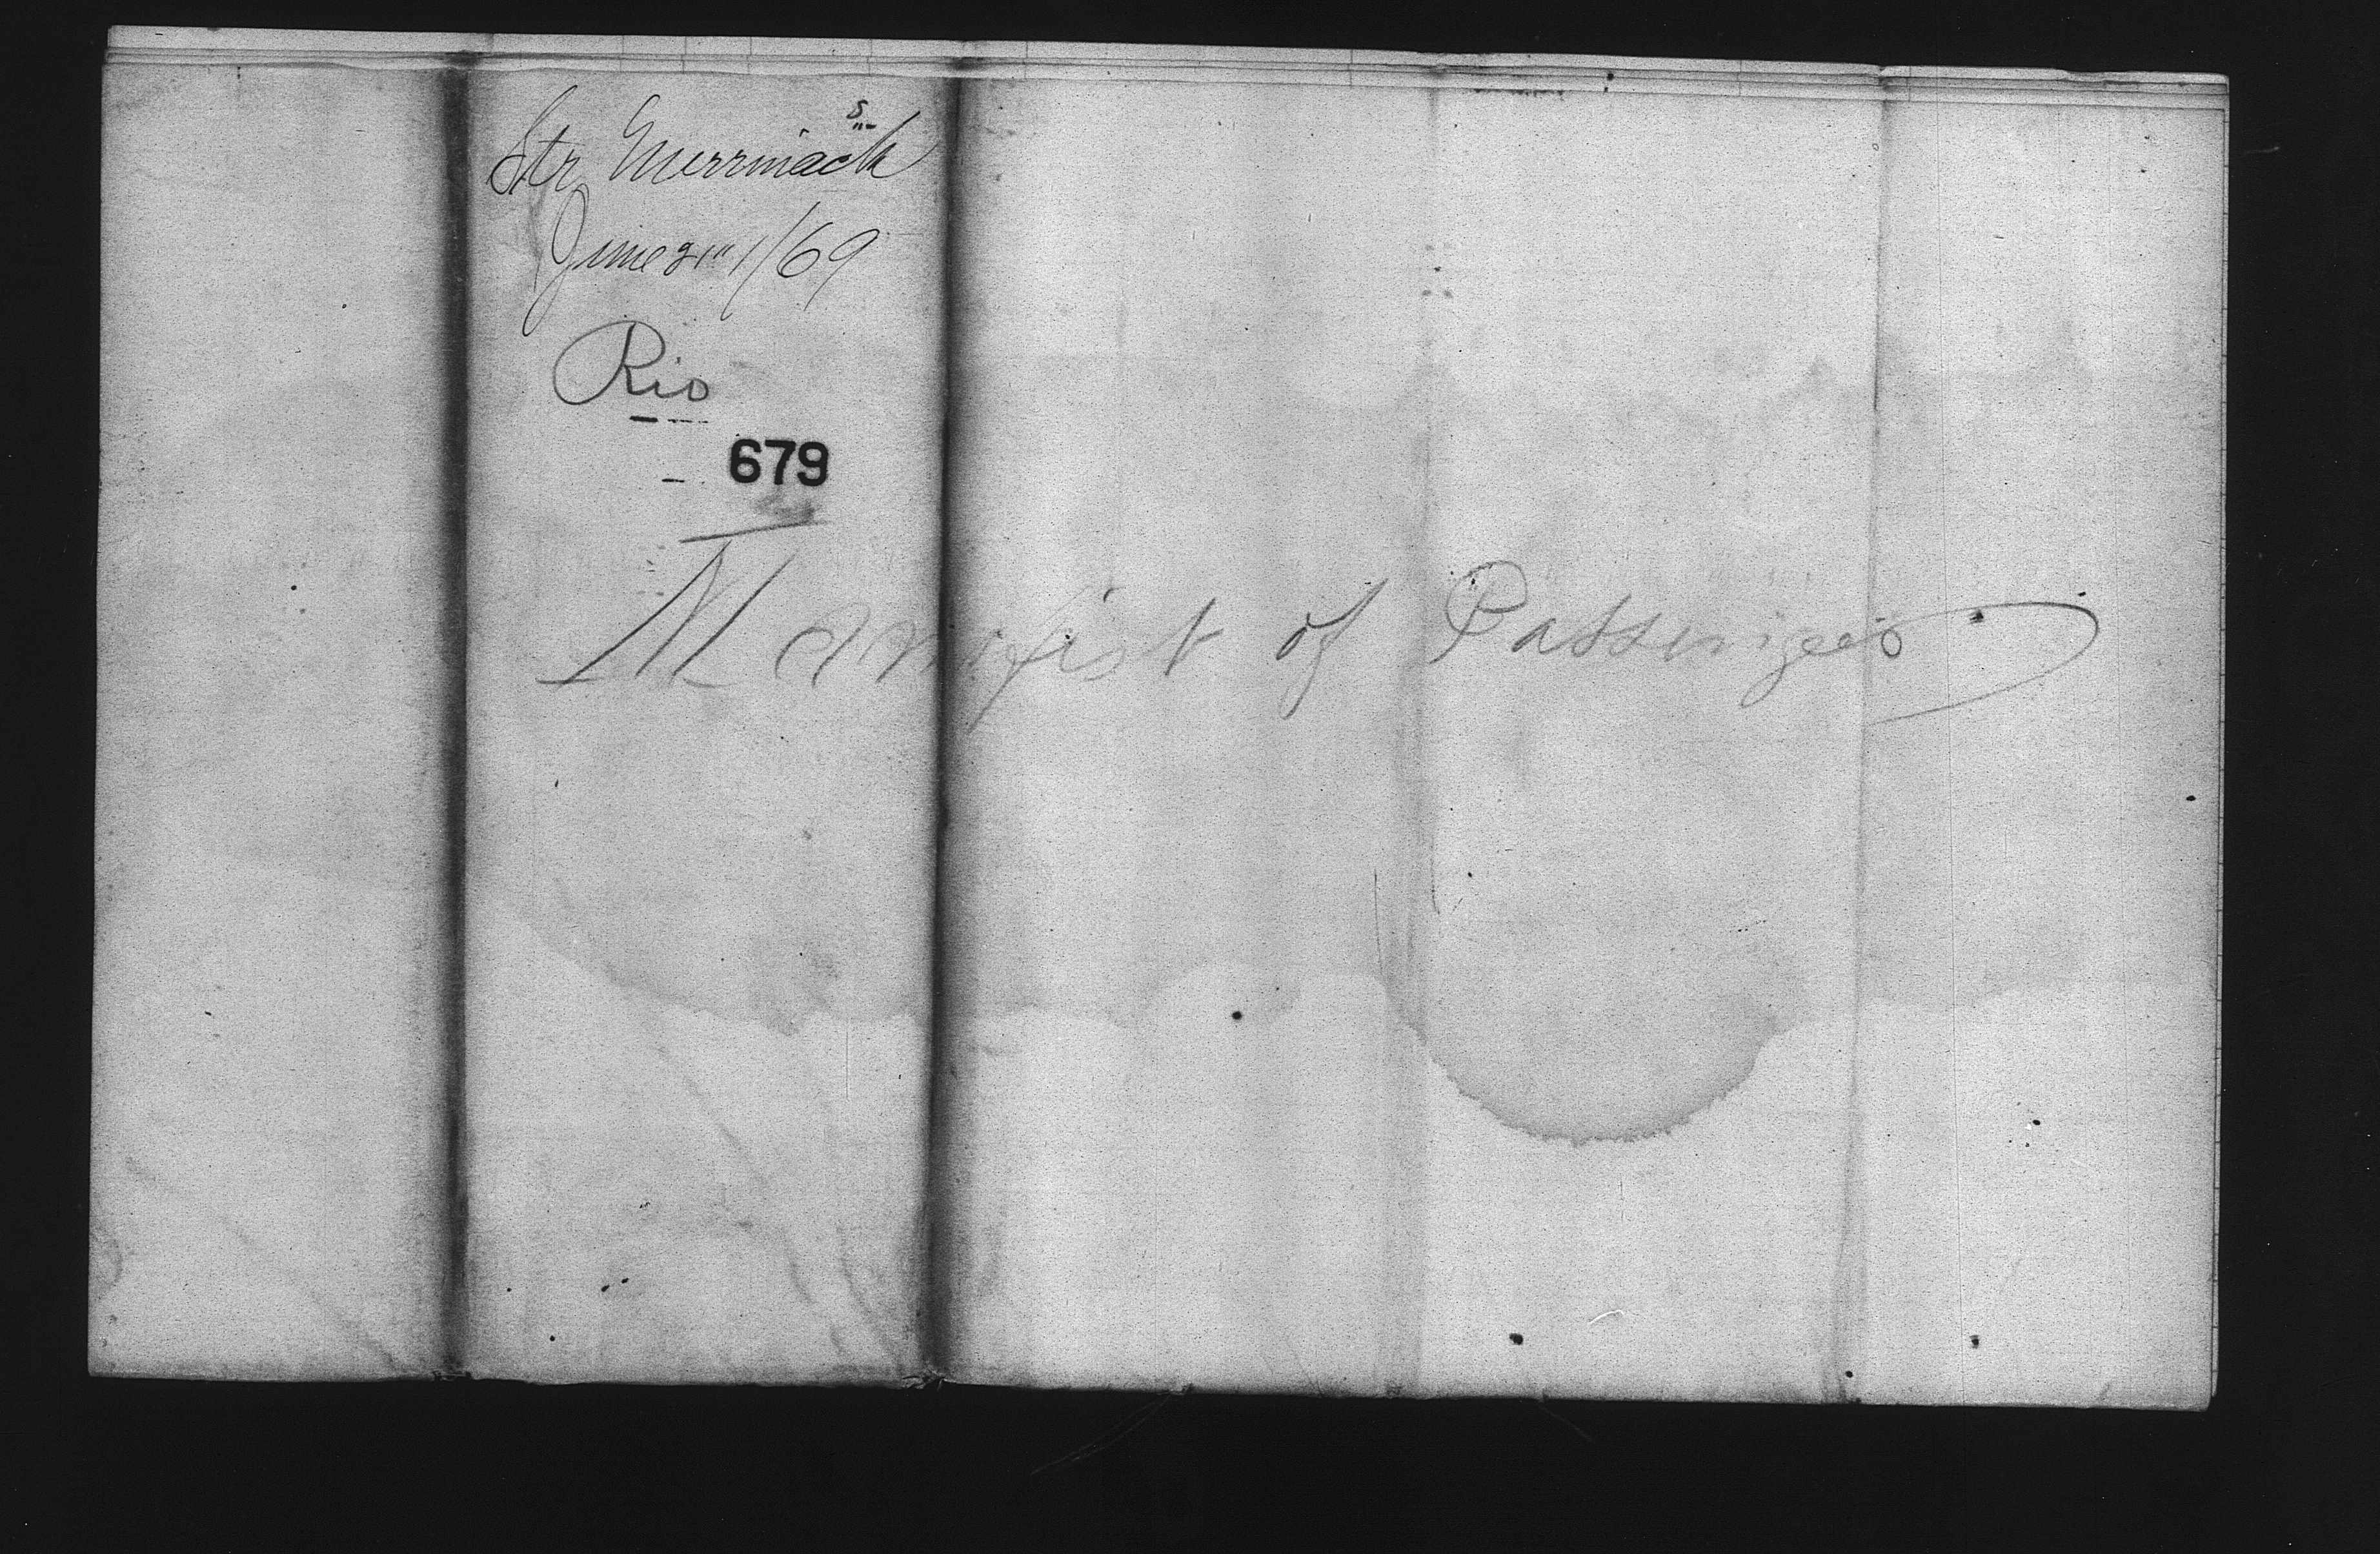 Str Merrimack
June 21" 1/69
Rio
679
Manifist of Passengers